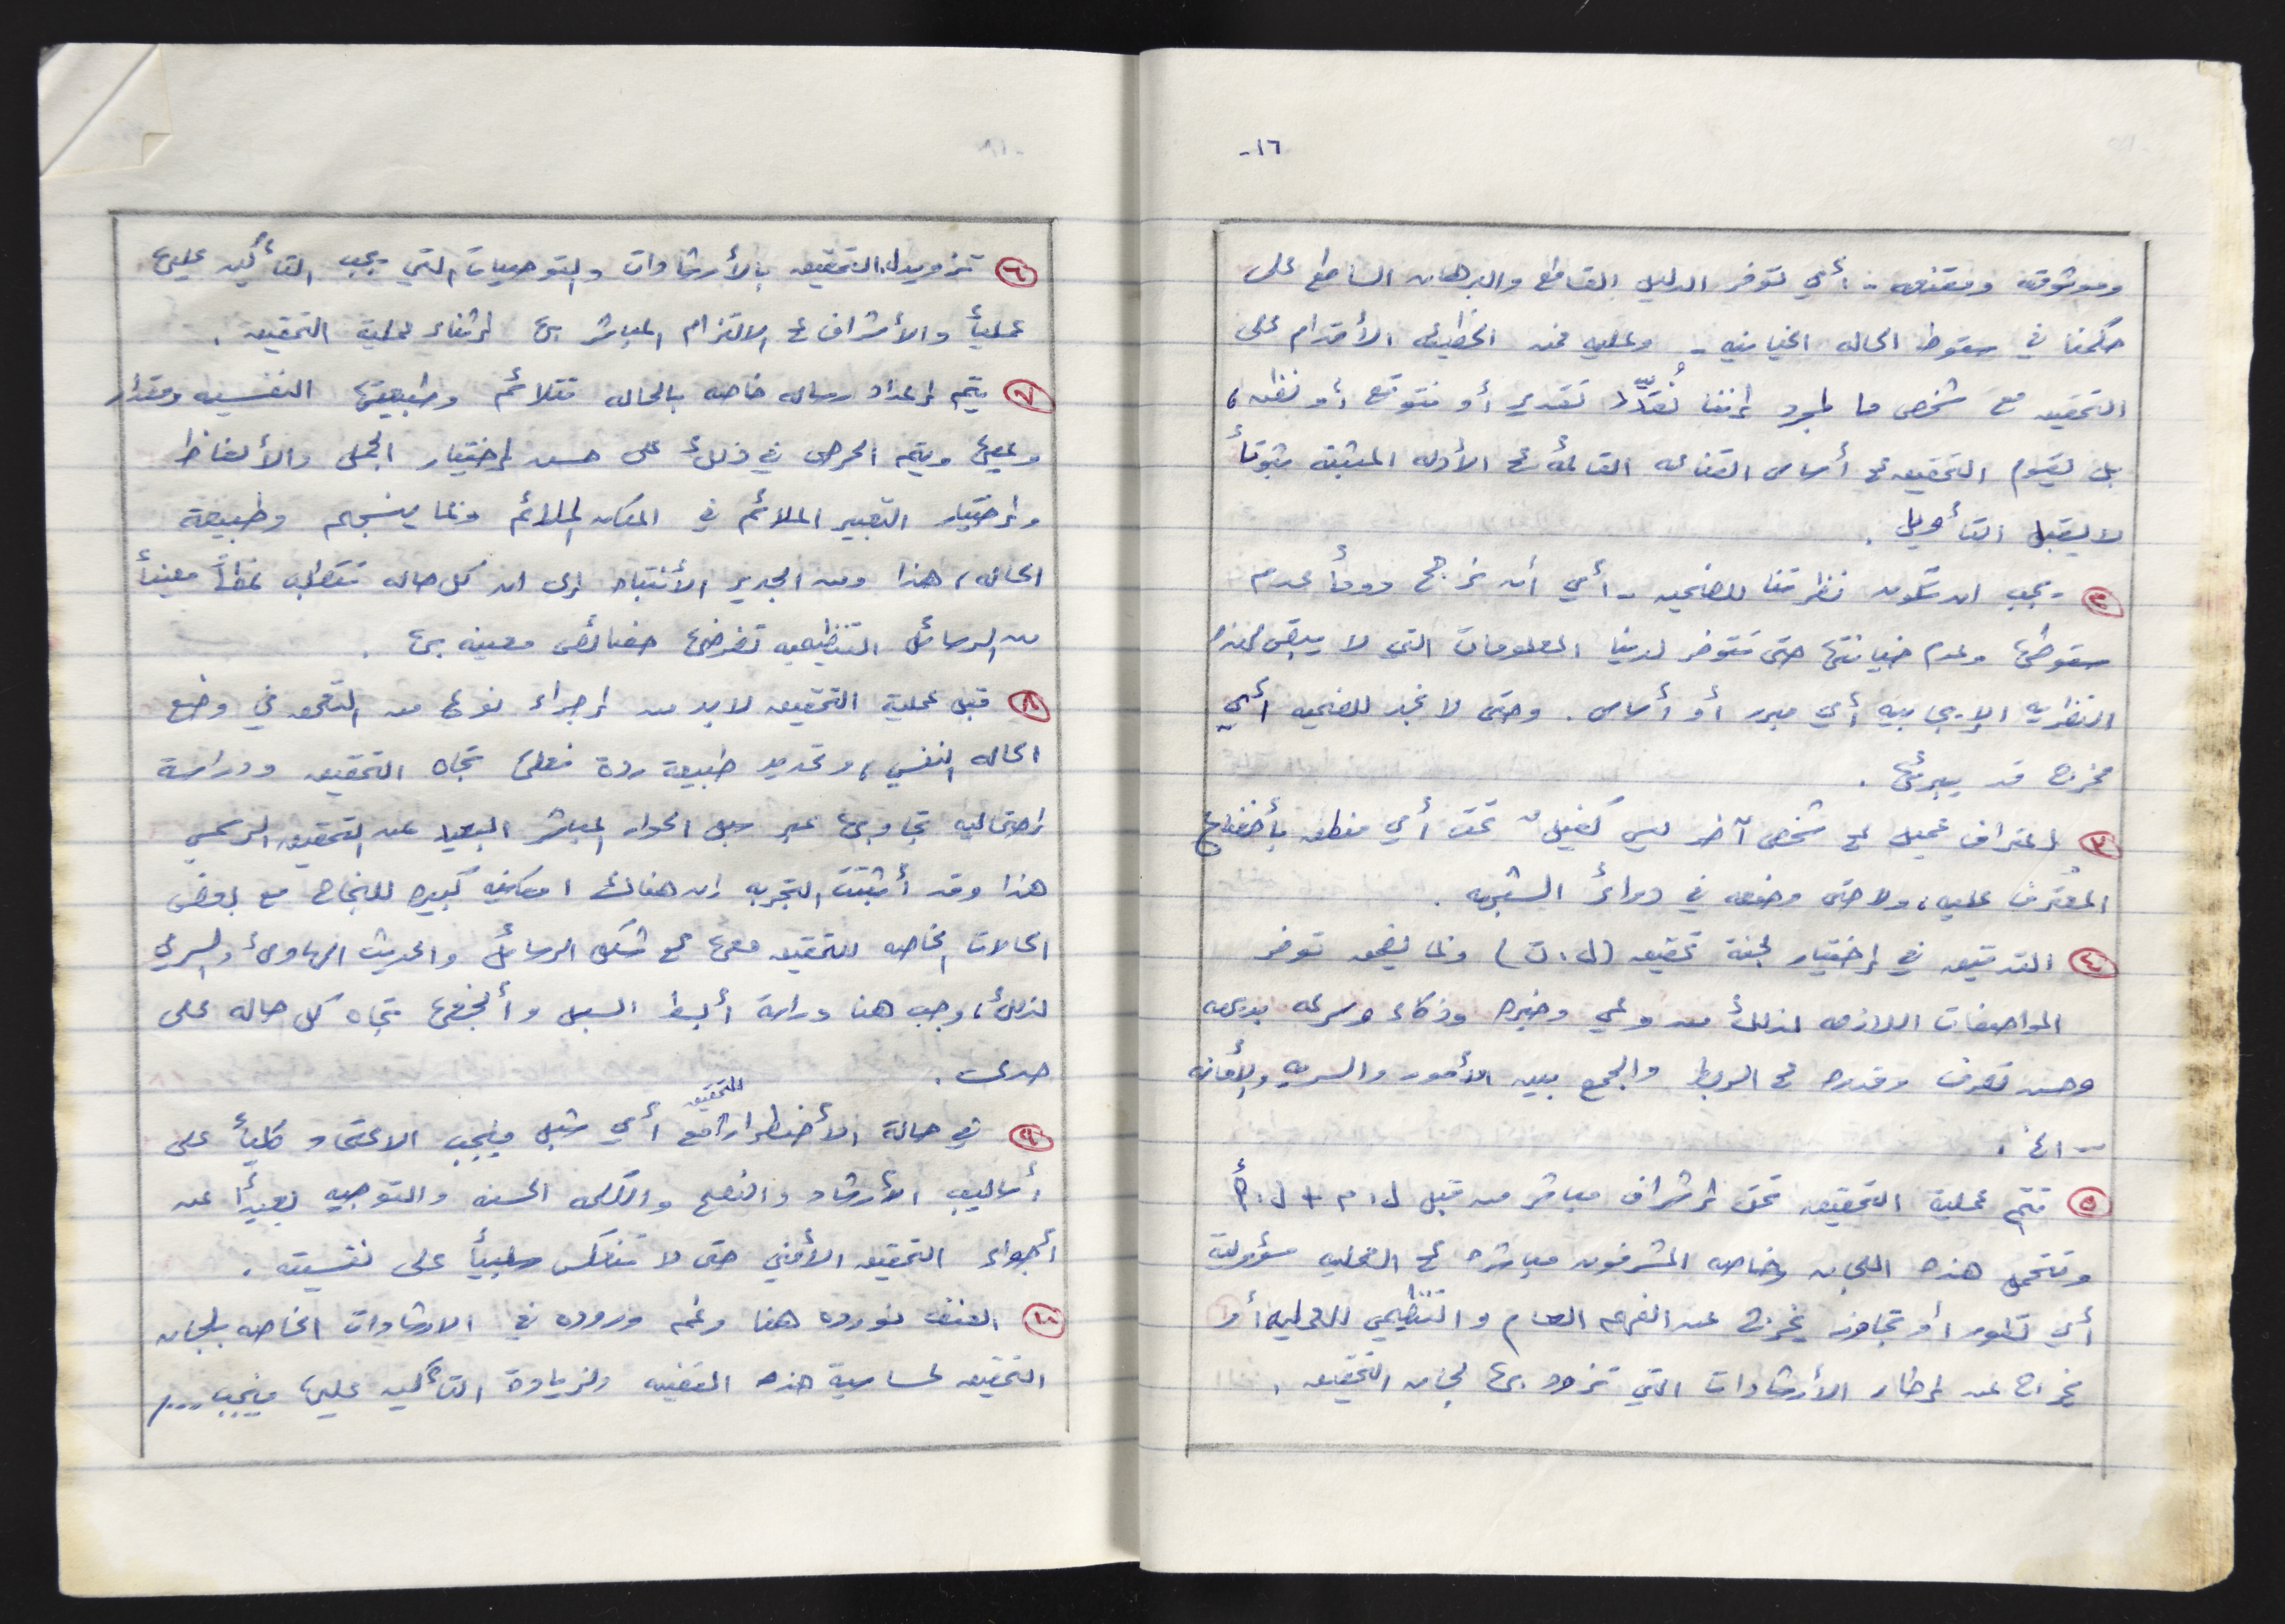 -١٦
وموثوقه ومقنعه - أي توفر الدليل القاطع والبرهان الساطع على
حكمنا في سقوط الحاله الخيانيه - وعليه فمن الخطيئه الأقدام على
التحقيق مع شخص ما لمجرد إننا نُقدِّر تقدير أو نتوقع أو نظن،
بل يقوم التحقيق ع أساس القناعه القائمه ع الأدله المثبته ثبوتاً
لا يقبل التأويل.
② يجب ان تكون نظرتنا للضحيه - أي أن نرجح دوماً عدم
سقوطها وعدم خيانتها حتى تتوفر لدينا المعلومات التي لا يبقى لهذه
النظريه الإيجابيه أي مبرر أو أساس. وحتى لا نجد للضحيه أي
مخرج قد يبرئها.
③ إعتراف عميل ع شخص آخر ليس كفيل تحت أي منطق بأخضاع
المُعترف عليه، ولا حتى وضعه في دوائر الشبهه.
④ التدقيق في إختيار لجنة تحقيق (ل.ت) وبما يضمن توفر
المواصفات اللازمه لذلك من وعي وخبره وذكاء وسرعه بديهه
وحسن تصرف وقدره ع الربط والجمع بين الأمور والسريه والأمانه
-- الخ.
⑤ تتم عملية التحقيق تحت إشراف مباشر من قبل ل.م + ل.أ
وتتحمل هذه اللجان وخاصه المشرفون مباشره ع العمليه مسؤولية
أي تطور أو تجاوز يخرج عن الفهم العام والتنظيمي للعمليه أو
يخرج عن إطار الأرشادات التي تزود بها لجان التحقيق.
⑥ تزويد ل.التحقيق بالأرشادات والتوصيات التي يجب التأكيد عليها
عملياً والأشراف ع الالتزام المباشر بها إثناء عملية التحقيق.
⑦ يتم إعداد رساله خاصه بالحاله تتلائم وطبيعتها النفسيه ومقدار
وعيها ويتم الحرص في ذلك على حسن إختيار الجمل والألفاظ
وإختيار التعبير الملائم في المكان الملائم وبما ينسجم وطبيعة
الحاله، هذا ومن الجدير الأنتباه إلى ان كل حاله تتطلب نمطاً معيناً
من الرسائل التنظيميه تفرضها خصائص معينه بها.
⑧ قبل عملية التحقيق لا بد من إجراء نوع من التعمق في وضع
الحاله النفسي، وتحديد طبيعة ردة فعلها تجاه التحقيق ودراسة
إحتماليه تجاوبها عبر سبل الحوار المباشر البعيد عن التحقيق الرسمي
هذا وقد أثبتت التجربه ان هنالك امكانيه كبيره للنجاح مع بعض
الحالات الخاصه للتحقيق معها ع شكل الرسائل والحديث الهادئ والسري
لذلك، وجب هنا دراسة أبسط السبل وأنجعها تجاه كل حاله على
حدى.
⑨ في حالة الأضطرار للتحقيق مع أي شبل فيجب الاعتماد كلياً على
أساليب الأرشاد والنصح والكلمه الحسنه والتوجيه بعيداً عن
أجواء التحقيق الأمني حتى لا تنعكس سلبياً على نفسيته.
⑩ العنف نورده هنا رغم وروده في الارشادات الخاصه بلجان
التحقيق لحساسية هذه القضيه ولزيادة التأكيد عليها فيجب .../